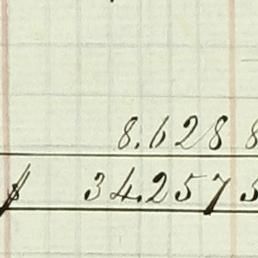 8.628 8
$ 34.257 5